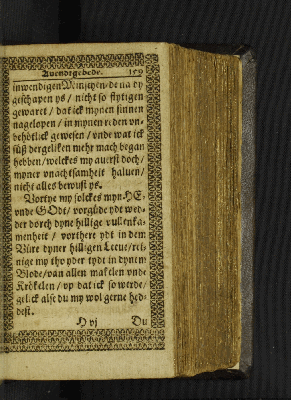 Auendtgebede. 159
inwendigen Minschen/de na dy
geschapen ys / nicht so flytigen
gewaret / dat ick mynen sinnen
nagelopen / in mynen reden vn-
behötlick gewesen / vnde wat ick
süß dergeliken mehr mach began
hebben / welckes my auerst doch /
myner vnachtsamheit haluen /
nicht alles bewust ys.
Vortye my solckes myn HE,
vnde GOdt / vorgüde ydt wed-
der dorch dyne hillige vullenka-
menheit / vorthere ydt in dem
Vüre dyner hilligen Leeue / rei-
nige my tho yder tydt in dynem
Blode / van allen mackelen vnde
Krökelen / vp dat ick so werde /
gelick alse du my wol gerne hed-
dest.
H vj Du